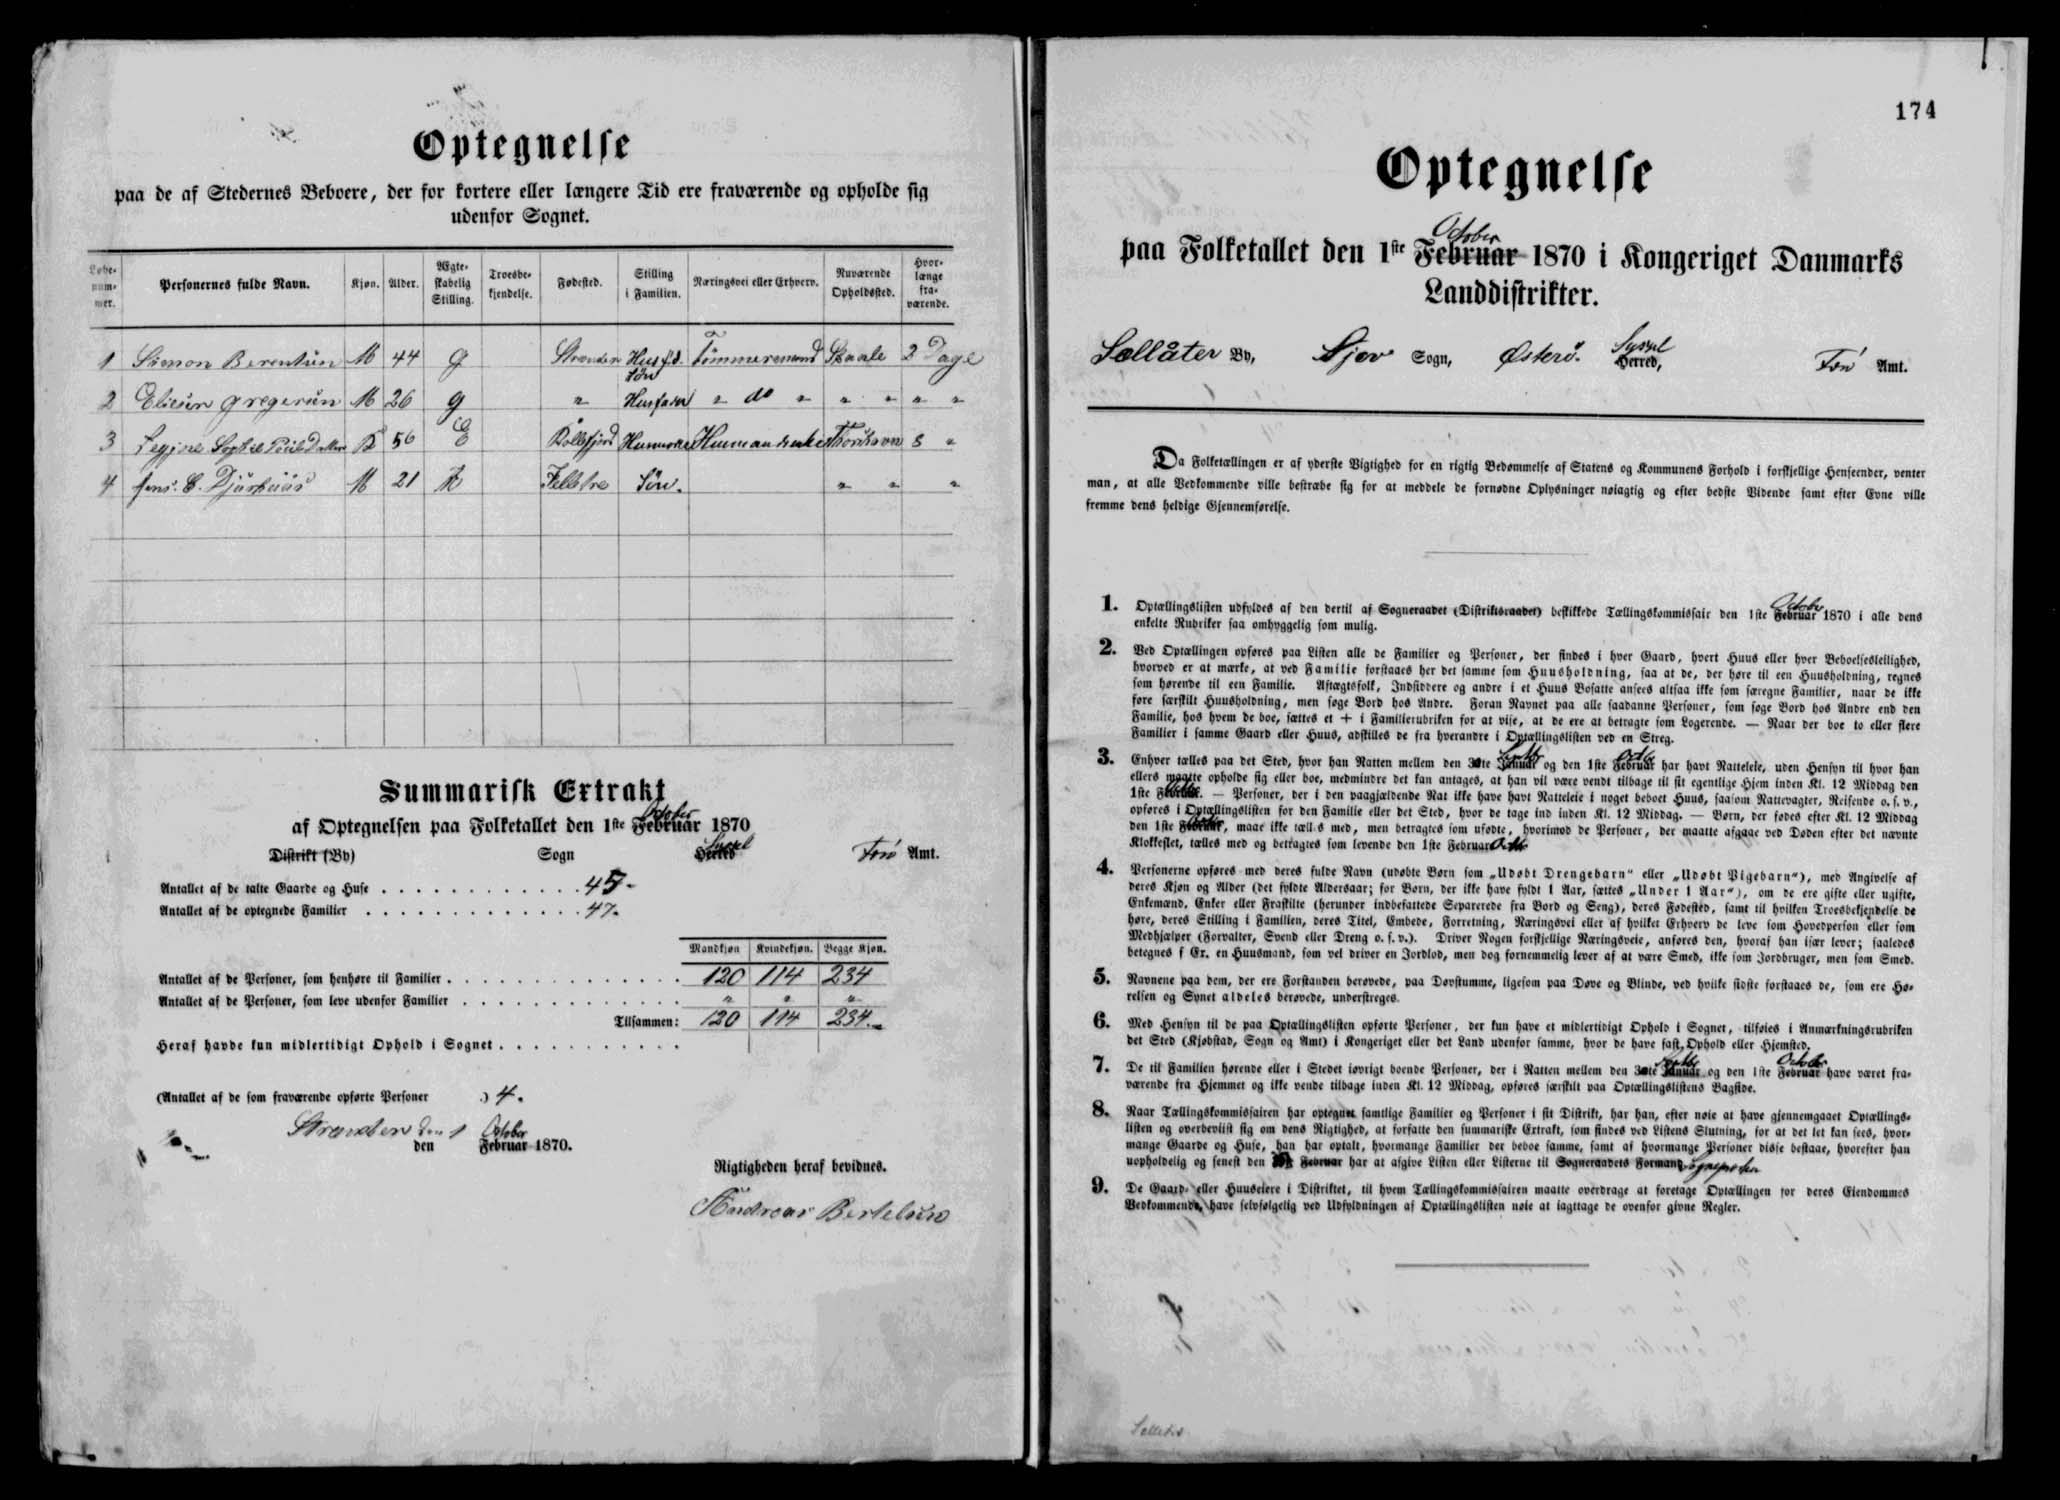 Optegnelse
paa de af Stedernes Beboere, der for kortere eller længere Tid ere fraværende og opholde sig
udenfor Sognet.
Løbe-nummer. Personernes fulde Navn. Kjøn. Alder. Ægteskabelig Stilling. Troesbekjendelse. Fødested. Stilling i Familien. Næringsvei eller Erhverv. Nuværende Opholdssted. Hvorlænge fraværende.
1 Simon Berentsen M 44 g Strender Husfd. Tømmermand Skaale 2 Dage
2 Eliesen Gregersen M 26 g " Søn Husfader " do " " " " "
3 Sophie K 56 E Kollefjord Huusmoder Thorshavn 8 "
4 Jens. M 21 Søn. " " "
Summarisk Extrakt
October
af Optegnelsen paa Folketallet den 1ste Februar 1870
Distrikt (By) Sogn Syssel Herred Færø Amt.
Antallet af de talte Gaarde og Huse 45-
Antallet af de optegnede Familier 47.
Mandkjøn Kvindekjøn. Begge Kjøn.
Antallet af de Personer, som henhøre til Familier 120 114 234
Antallet af de Personer, som leve udenfor Familier " " "
Tilsammen: 120 114 234.
Heraf havde kun midlertidigt Ophold i Sognet
(Antallet af de som fraværende opførte Personer ) 4.
Strender den 1 October
den Februar 1870.
Rigtigheden heraf bevidnes.
Andreas Bertelsen
174
Optegnelse
October
paa Folketallet den 1ste Februar 1870 i Kongeriget Danmarks
Landdistrikter.
Sellåter By, Njov Sogn, Østerø. Syssel Herred, Færø Amt.
Da Folketællingen er af yderste Vigtighed for en rigtig Bedømmelse af Statens og Kommunens Forhold i forskjellige Henseender, venter
man, at alle Vedkommende ville bestræbe sig for at meddele de fornødne Oplysninger nøiagtig og efter bedste Vidende samt efter Evne ville
fremme dens heldige Gjennemførelse.
1. Optællingslisten udfyldes af den dertil af Sogneraadet (Distriktsraadet) beskikkede Tællingskommissair den 1ste Februar October 1870 i alle dens
enkelte Rubriker saa omhyggelig som mulig.
2. Ved Optællingen opføres paa Listen alle de Familier og Personer, der findes i hver Gaard, hvert Huus eller hver Beboelsesleilighed,
hvorved er at mærke, at ved Familie forstaaes her det samme som Huusholdning, saa at de, der høre til een Huusholdning, regnes
som hørende til een Familie. Aftægtsfolk, Indsiddere og andre i et Huus Bosatte ansees altsaa ikke som særegne Familier, naar de ikke
føre særskilt Huusholdning, men søge Bord hos Andre. Foran Navnet paa alle saadanne Personer, som søge Bord hos Andre end den
Familie, hos hvem de boe, sættes et + i Familierubriken for at vise, at de ere at betragte som Logerende. — Naar der boe to eller flere
Familier i samme Gaard eller Huus, adskilles de fra hverandre i Optællingslisten ved en Streg.
3. Enhver tælles paa det Sted, hvor han Natten mellem den 30te Januar Septbr og den 1ste Februar Octbr har havt Natteleie, uden Hensyn til hvor han
ellers maatte opholde sig eller boe, medmindre det kan antages, at han vil være vendt tilbage til sit egentlige Hjem inden Kl. 12 Middag den
1ste Februar. — Personer, der i den paagjældende Nat ikke have havt Natteleie i noget beboet Huus, saasom Nattevagter, Reisende o. s. v.,
opføres i Optællingslisten for den Familie eller det Sted, hvor de tage ind inden Kl. 12 Middag. — Børn, der fødes efter Kl. 12 Middag
den 1ste Februar, maae ikke tælles med, men betragtes som ufødte, hvorimod de Personer, der maatte afgaae ved Døden efter det nævnte
Klokkeslet, tælles med og betragtes som levende den 1ste Februar Octbr
4. Personerne opføres med deres fulde Navn (udøbte Børn som „Udøbt Drengebarn“ eller „Udøbt Pigebarn“), med Angivelse af
deres Kjøn og Alder (det fyldte Aldersaar; for Børn, der ikke have fyldt 1 Aar, sættes „Under 1 Aar“), om de ere gifte eller ugifte,
Enkemænd, Enker eller Fraskilte (herunder indbefattede Separerede fra Bord og Seng), deres Fødested, samt til hvilken Troesbekjendelse de
høre, deres Stilling i Familien, deres Titel, Embede, Forretning, Næringsvei eller af hvilket Erhverv de leve som Hovedperson eller som
Medhjælper (Forvalter, Svend eller Dreng o. s. v.). Driver Nogen forskjellige Næringsveie, anføres den, hvoraf han især lever; saaledes
betegnes f Ex. en Huusmand, som vel driver en Jordlod, men dog fornemmelig lever af at være Smed, ikke som Jordbruger, men som Smed.
5. Navnene paa dem, der ere Forstanden berøvede, paa Døvstumme, ligesom paa Døve og Blinde, ved hvilke sidste forstaaes de, som ere Hø-
relsen og Synet aldeles berøvede, understreges.
6. Med Hensyn til de paa Optællingslisten opførte Personer, der kun have et midlertidigt Ophold i Sognet, tilføies i Anmærkningsrubriken
det Sted (Kjøbstad, Sogn og Amt) i Kongeriget eller det Land udenfor samme, hvor de have fast Ophold eller Hjemsted.
7. De til Familien hørende eller i Stedet iøvrigt boende Personer, der i Natten mellem den 30te Januar Septbr og den 1ste Februar October have været fra-
værende fra Hjemmet og ikke vende tilbage inden Kl. 12 Middag, opføres særskilt paa Optællingslistens Bagside.
8. Naar Tællingskommissairen har optegnet samtlige Familier og Personer i sit Distrikt, har han, efter nøie at have gjennemgaaet Optællings-
listen og overbeviist sig om dens Rigtighed, at forfatte den summariske Extrakt, som findes ved Listens Slutning, for at det let kan sees, hvor-
mange Gaarde og Huse, han har optalt, hvormange Familier der beboe samme, samt af hvormange Personer disse bestaae, hvorefter han
uopholdelig og senest den Februar har at afgive Listen eller Listerne til Sogneraadets Formand Sognepræsten
9. De Gaard- eller Huuseiere i Distriktet, til hvem Tællingskommissairen maatte overdrage at foretage Optællingen for deres Eiendommes
Vedkommende, have selvfølgelig ved Udfyldningen af Optællingslisten nøie at iagttage de ovenfor givne Regler.